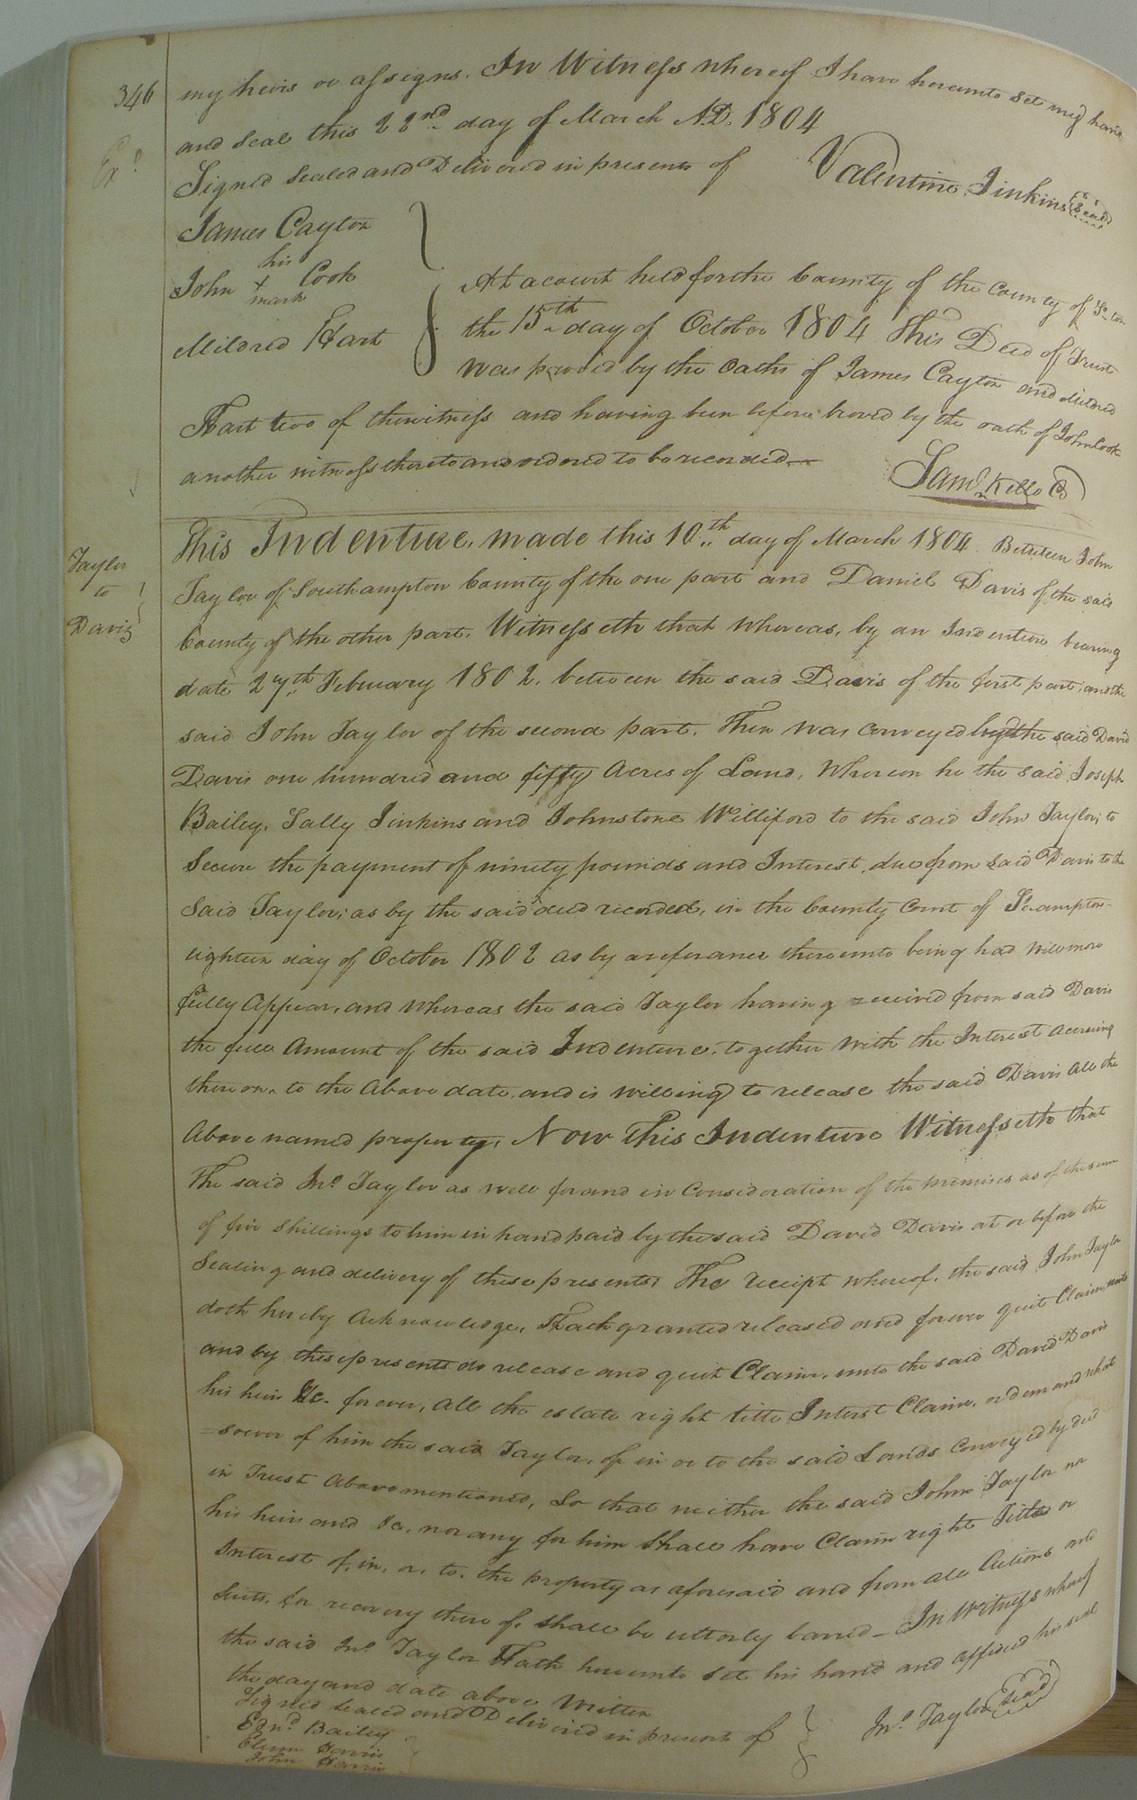 346
my heirs or assigns. In Witness whereof I have hereunto set my hand
Exd.
and seal this 22nd day of March A.D. 1804
Signed Sealed and Delivered in presents of
Valentine Jinkins (Seal)
James Cayton
his
John + Cook
mark
Mildred Hart
At a court held for the County of the County of
the 15th day of October 1804 This Deed of Trust
was proved by the Oaths of James Cayton and Mildred
Hart two of the witness and having been before proved by the oath of John Cook
another witness thereto and ordered to be recorded
Saml. Kello C
Taylor
to
Davis
This Indenture, made this 10th day of March 1804 Between John
Taylor of Southampton County of the one part and Daniel Davis of the said
County of the other part. Witnesseth that whereas, by an Indenture bearing
date 27th February 1802. between the said Davis of the first part, and the
said John Taylor of the second part. Then was conveyed by the said David
Davis one hundred and fifty Acres of Land, Whereon he the said Joseph
Bailey, Sally Jinkins and Johnstone Williford to the said John Taylor, to
Secure the payment of ninety pounds and Interest, due from said Davis to the
Said Taylor; as by the said deed recorded, in the County Court of Sthampton
eighteen day of October 1802 as by a referance thereunto being had will more
fully Appear, and whereas the said Taylor having received from said Davis
the full Amount of the said Indenture, together with the Interest accruing
thereon, to the Above date, and is willing to release the said Davis All the
Above named property, Now This Indenture Witnesseth that
The said Jno. Taylor as well for and in Consideration of the premises as of the sum
of five shillings to him in hand paid by the said David Davis at or before the
Sealing and delivery of these presents, The receipt whereof, the said John Taylor
doth hereby Acknowledge, Hath granted released and forever quit Claim
and by these presents do release and quit Claim, unto the said David Davis
his heirs &c. forever, All the estate right title Interst Claim, or dem and what
=soever of him the said Taylor, of in or to the said Lands Conveyed by deed
in Trust Abovementioned, So that neither the said John Taylor nor
his heirs and &c, nor any for him Shall have Claim right Title or
Interest of, in, or, to, the property as aforesaid and from all Actions and
Suits, for recovery there of, shall be utterly barred — In Witness whereof
the said Jno. Taylor Hath hereunto set his hand and affixed his seal
the day and date above Written
Signed sealed and Delivered in present of
Jno. Taylor (Seal)
Ednd. Bailey
Harris
John Harris